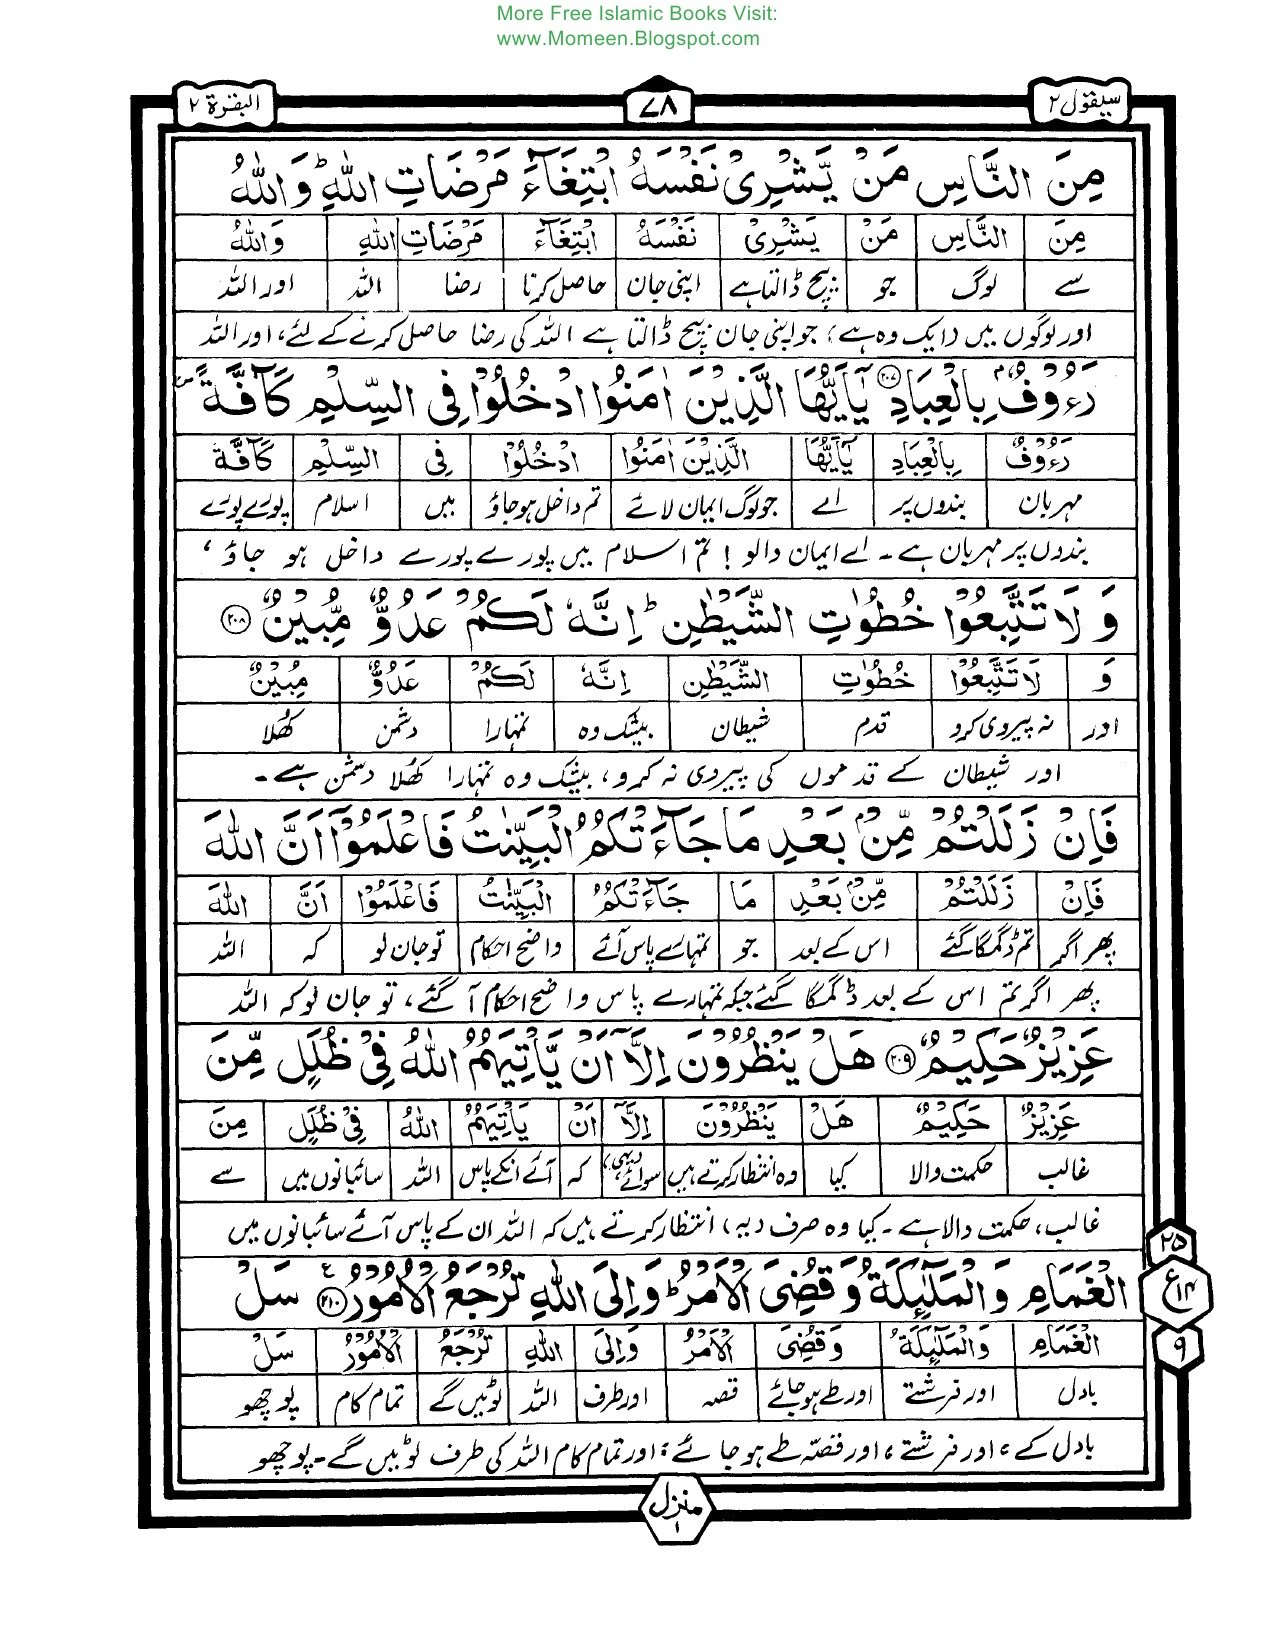 More Free Islamic Books Visit:
www.Momeen.Blogspot.com
سیقول ۲
۷۸
البقرة ۲
مِنَ النَّاسِ مَنْ يَّشْرِىْ نَفْسَهُ ابْتِغَآءَ مَرْضَاتِ اللّٰهِ ؕ وَاللّٰهُ
مِنَ النَّاسِ مَنْ يَشْرِىْ نَفْسَهُ ابْتِغَآءَ مَرْضَاتِ اللّٰهِ وَاللّٰهُ
سے لوگ جو بیچ ڈالتا ہے اپنی جان حاصل کرنا رضا اللہ اور اللہ
اور لوگوں میں (ایک وہ ہے) جو اپنی جان بیچ ڈالتا ہے اللہ کی رضا حاصل کرنے کے لئے، اور اللہ
رَءُوْفٌۢ بِالْعِبَادِ ۲۰۷ يٰۤاَيُّهَا الَّذِيْنَ اٰمَنُوا ادْخُلُوْا فِى السِّلْمِ كَآفَّةً
رَءُوْفٌ بِالْعِبَادِ يٰۤاَيُّهَا الَّذِيْنَ اٰمَنُوا ادْخُلُوْا فِى السِّلْمِ كَآفَّةً
مہربان بندوں پر اے جو لوگ ایمان لائے تم داخل ہو جاؤ میں اسلام پورے پورے
بندوں پر مہربان ہے۔ اے ایمان والو! تم اسلام میں پورے پورے داخل ہو جاؤ ،
وَ لَا تَتَّبِعُوْا خُطُوٰتِ الشَّيْطٰنِ ؕ اِنَّهٗ لَكُمْ عَدُوٌّ مُّبِيْنٌ ۲۰۸
وَ لَا تَتَّبِعُوْا خُطُوٰتِ الشَّيْطٰنِ اِنَّهٗ لَكُمْ عَدُوٌّ مُبِيْنٌ
اور نہ پیروی کرو قدم شیطان بیشک وہ تمہارا دشمن کھلا
اور شیطان کے قدموں کی پیروی نہ کرو، بیشک وہ تمہارا کھلا دشمن ہے۔
فَاِنْ زَلَلْتُمْ مِّنْۢ بَعْدِ مَا جَآءَتْكُمُ الْبَيِّنٰتُ فَاعْلَمُوْۤا اَنَّ اللّٰهَ
فَاِنْ زَلَلْتُمْ مِّنْۢ بَعْدِ مَا جَآءَتْكُمُ الْبَيِّنٰتُ فَاعْلَمُوْۤا اَنَّ اللّٰهَ
پھر اگر تم ڈگمگا گئے اس کے بعد جو تمہارے پاس آئے واضح احکام تو جان لو کہ اللہ
پھر اگر تم اس کے بعد ڈگمگا گئے جبکہ تمہارے پاس واضح احکام آ گئے، تو جان لو کہ اللہ
عَزِيْزٌ حَكِيْمٌ ۲۰۹ هَلْ يَنْظُرُوْنَ اِلَّاۤ اَنْ يَّاْتِيَهُمُ اللّٰهُ فِىْ ظُلَلٍ مِّنَ
عَزِيْزٌ حَكِيْمٌ هَلْ يَنْظُرُوْنَ اِلَّاۤ اَنْ يَاْتِيَهُمُ اللّٰهُ فِىْ ظُلَلٍ مِنَ
غالب حکمت والا کیا وہ انتظار کرتے ہیں سوائے (یہی) کہ آئے انکے پاس اللہ سائبانوں میں سے
غالب، حکمت والا ہے۔ کیا وہ صرف (یہ) انتظار کرتے ہیں کہ اللہ ان کے پاس آئے سائبانوں میں
الْغَمَامِ وَ الْمَلٰٓئِكَةُ وَ قُضِىَ الْاَمْرُ ؕ وَ اِلَى اللّٰهِ تُرْجَعُ الْاُمُوْرُ ۲۱۰ سَلْ
الْغَمَامِ وَالْمَلٰٓئِكَةُ وَقُضِىَ الْاَمْرُ وَاِلَى اللّٰهِ تُرْجَعُ الْاُمُوْرُ سَلْ
بادل اور فرشتے اور طے ہو جائے قصہ اور طرف اللہ لوٹیں گے تمام کام پوچھو
بادل کے، اور فرشتے، اور قصّہ طے ہو جائے، اور تمام کام اللہ کی طرف لوٹیں گے۔ پوچھو
۲۵
ع ۱۴
۹
منزل ۱